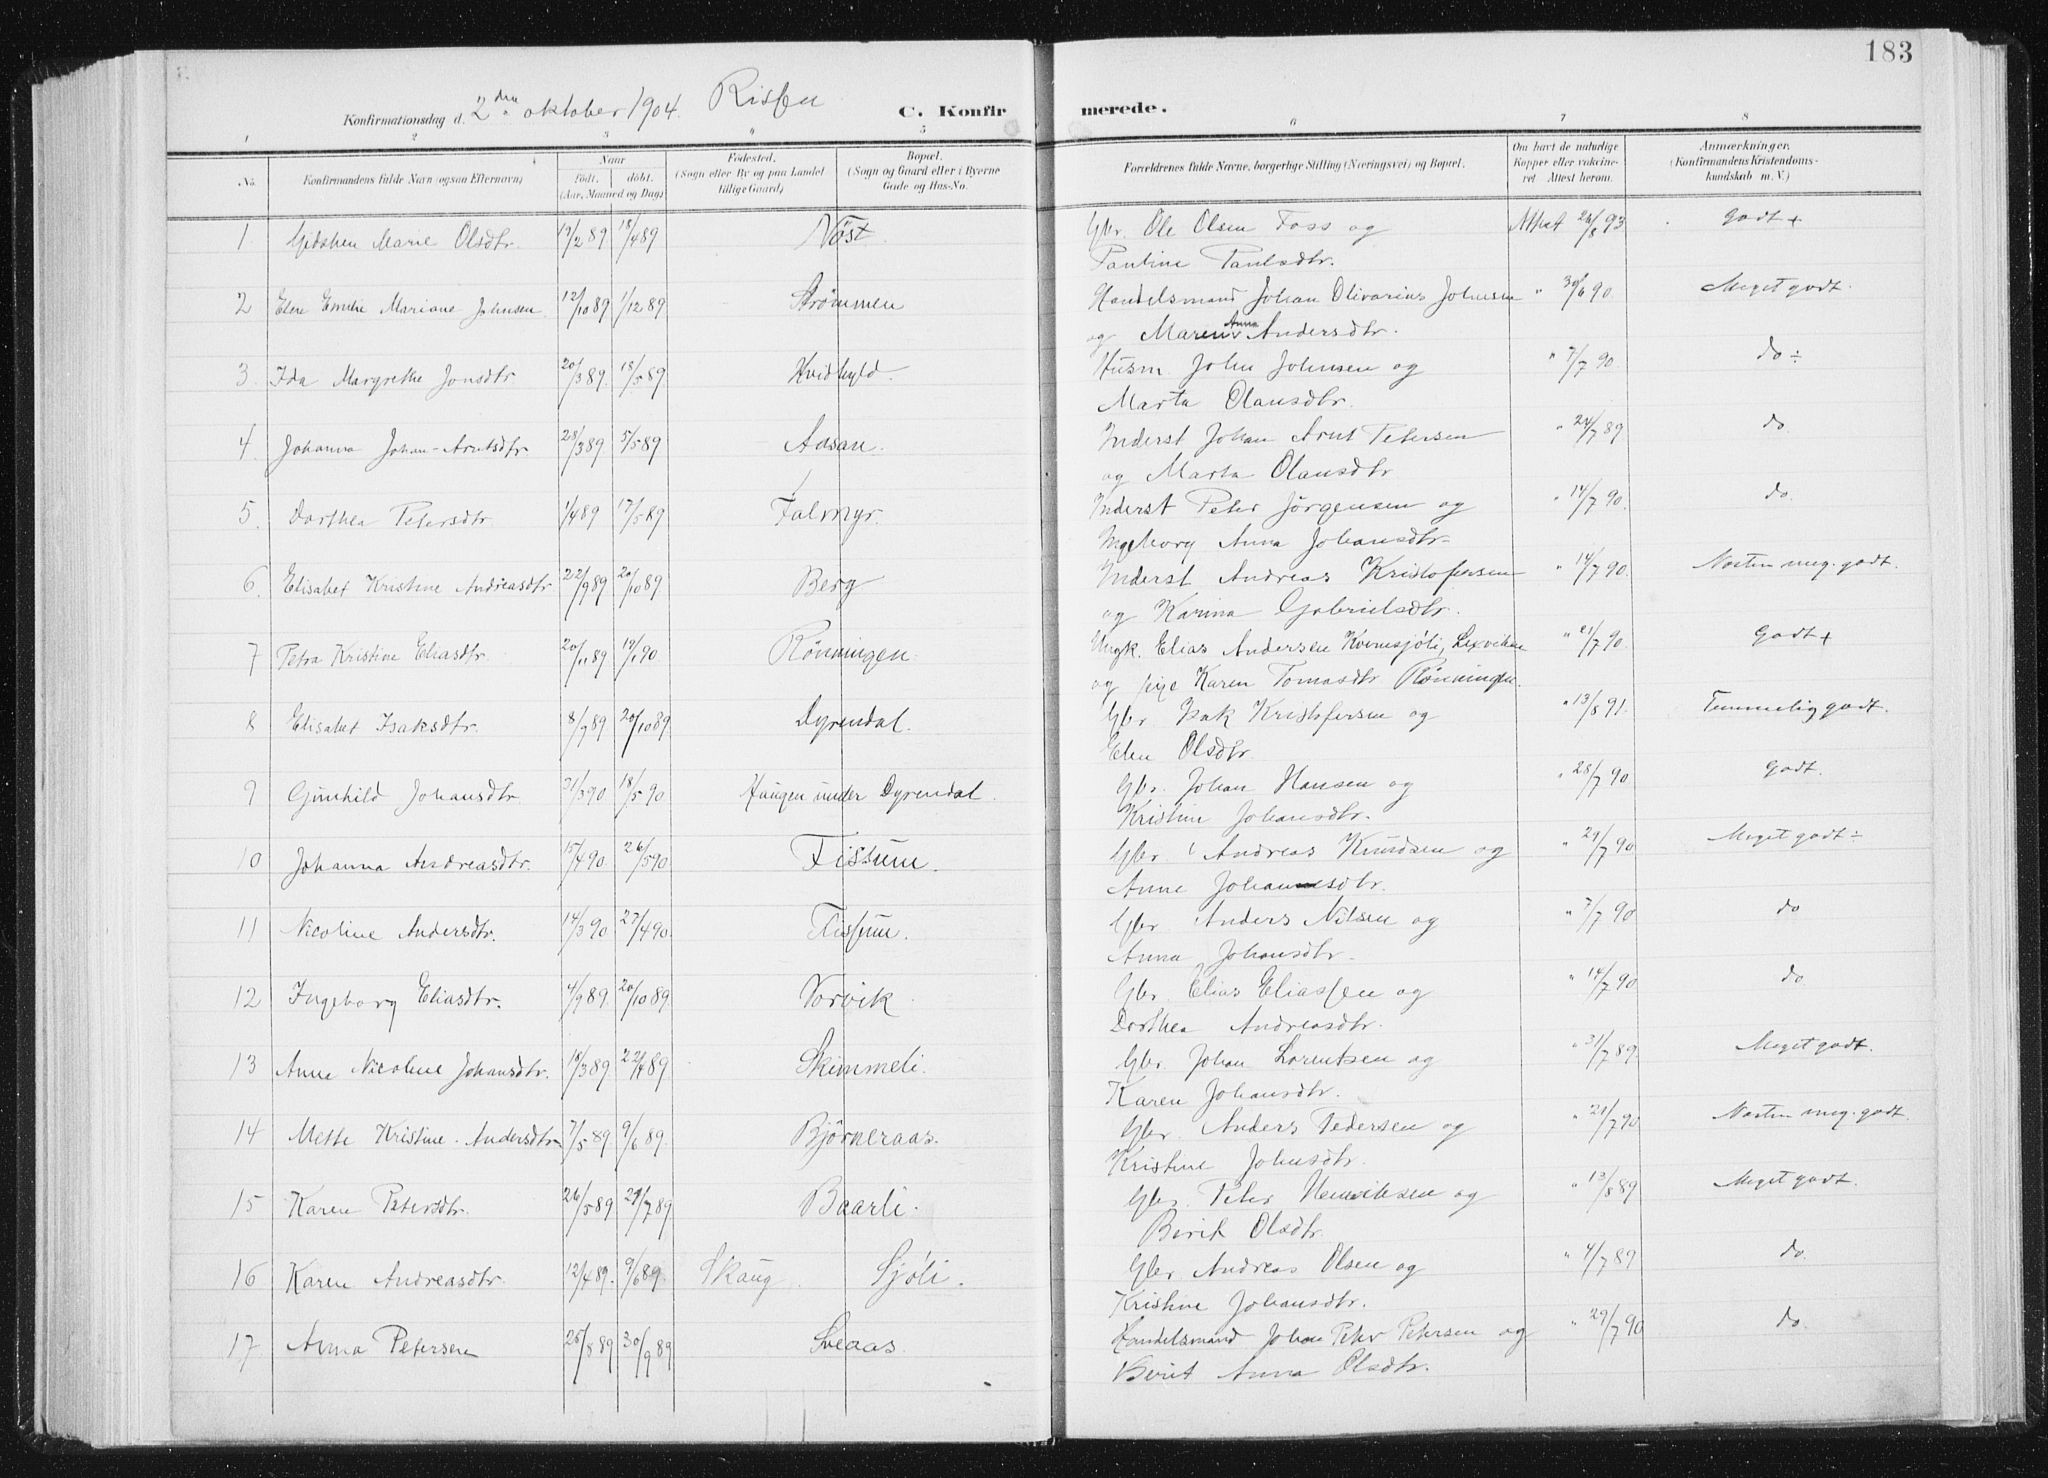 183
Konfirmationsdag d. 2den oktober 1904. Rissen C. Konfirmerede.
1 2 3 4 5 6 7 8
No. Konfirmandens fulde Navn (ogsaa Efternavn) Naar født. døbt. (Aar, Maaned og Dag) Fødested. (Sogn eller By og paa Landet tillige Gaard) Bopæl. (Sogn og Gaard eller i Byerne Gade og Hus-No. Forældrenes fulde Navne, borgerlige Stilling (Næringsvei) og Bopæl. Om havt de naturlige Kopper eller vaccineret. Attest herom. Anmærkninger. (Konfirmandens Kristendomskundskab m. V.)
1. Gjdsken Marie Olsdtr. 19/2 89 18/4 89 Nöst Gbr. Ole Olsen Foss og Attest 26/8 93 Godt +
Pauline Paulsdtr.
2 Elen Emelie Mariane Johnsen 12/10 89 1/12 89 Strømmen Handelsmand Johan Olivarius Johnsen " 30/6 90 Meget godt.
og Maren Anna Andersdtr.
3. Ida Margrethe Jonsdtr 20/3 89. 18/5 89 Hvidhyld. Husm. John Johnsen og " 7/7 90 do ÷
Marta Olausdtr.
4. Johanna Johan-Arntsdtr 28/3 89. 5/5 89 Aasan. Inderst Johan Arnt Petersen " 24/7 89 do.
og Marta Olausdtr
5. Dorthea Petersdtr. 1/4 89 17/5 89 Falmyr. Inderst Peter Jörgensen og " 14/7 90. do.
Ingeborg Anna Johansdtr
6. Elisabet Kristine Andreasdtr 22/9 89 20/10 89 Berg Inderst Andreas Kristofersen " 14/7 90. Næsten meg. godt.
og Karina Gabrielsdtr.
7 Petra Kristine Eliasdtr. 20/11 89 19/1 90. Rönningen. Ungk. Elias Andersen Kvernsjöli, Lexviken " 21/7 90. Godt +
og pige Karen Tomasdtr Rönningen.
8 Elisabet Isaksdtr. 8/9 89 20/10 89 Dyrendal. Gbr Isak Kristofersen og " 13/8 91. Temmelig godt.
Elen Olsdtr.
9 Gunhild Johansdtr. 31/3 90 18/5 90 Haugen under Dyrendal. Gbr. Johan Hansen og " 28/7 90 Godt.
Kristine Johansdtr.
10 Johanna Andreasdtr. 15/4 90 26/5 90 Fissum. Gbr. Andreas Knudsen og " 29/7 90 Meget godt ÷
Anne Johannesdtr.
11 Nicoline Andersdtr. 14/3 90. 27/4 90. Fissum. Gbr Anders Nilsen og " 7/7 90 do
Anna Johansdtr.
12 Ingeborg Eliasdtr. 4/9 89. 20/10 89. Vorvik. Gbr. Elias Eliassen og " 14/7 90 do.
Dorthea Andreasdtr.
13 Anne Nicoline Johansdtr. 18/3 89. 22/4 89 Skimmeli. Gbr. Johan Lorentsen og " 31/7 89. Meget godt.
Karen Johansdtr.
14 Mette Kristine Andersdtr 7/5 89 9/6 89. Björneraas. Gbr. Anders Pedersen og " 21/7 90 Næsten meg. godt.
Kristine Johnsdtr.
15 Karen Petersdtr. 26/5 89 21/7 89 Baarli. Gbr Peter Henriksen og " 13/8 89 Meget godt.
Berit Olsdtr.
16 Karen Andreasdtr. 12/4 89. 9/6 89. Skaug. Sjöli. Gbr. Andreas Olsen og " 4/7 89 do.
Kristine Johansdtr.
17. Anna Petersen 25/8 89 30/9 89 Sveaas. Handelsmand Johan Peter Petersen og " 29/7 90 do.
Berit Anna Olsdtr.